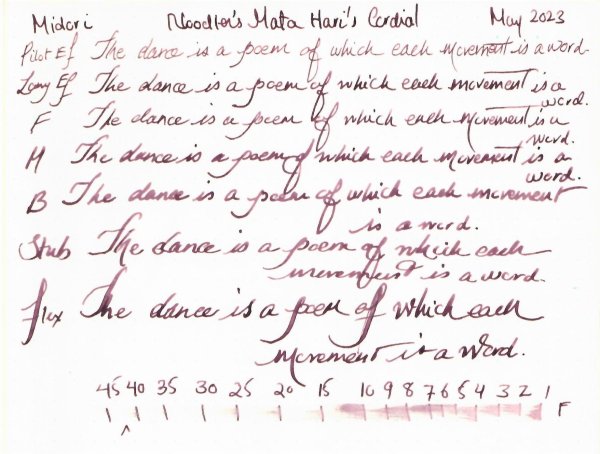 Midori Noodler's Mata Hari's Cordial May 2023
Pilot Ef The dance is a poem of which each movement is a word.
Lamy Ef The dance is a poem of which each movement is a
word.
F The dance is a poem of which each movement is a
word.
M The dance is a poem of which each movement is a
word.
B The dance is a poem of which each movement
is a word.
Stub The dance is a poem of which each
movement is a word.
flex The dance is a poem of which each
movement is a word.
45 40 35 30 25 20 15 10 9 8 7 6 5 4 3 2 1
F